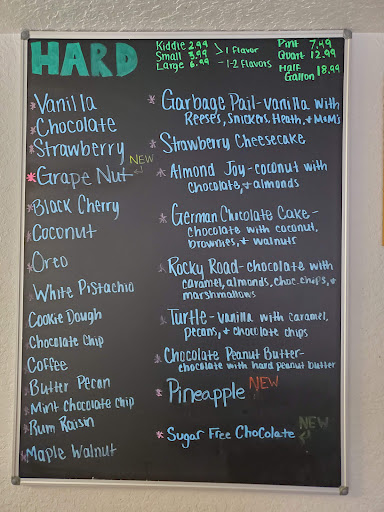 HARD
Kiddie 2.99
Small 3.99 > 1 flavor
Large 6.99 - 1-2 flavors
Pint 7.49
Quart 12.99
Half Gallon 18.99
*Vanilla
*Chocolate
*Strawberry
*Grape Nut NEW
*Black Cherry
*Coconut
*Oreo
*White Pistachio
Cookie Dough
Chocolate Chip
*Coffee
*Butter Pecan
*Mint Chocolate Chip
*Rum Raisin
*Maple Walnut
*Garbage Pail-vanilla with
Reese's, Snickers, Heath, + M&M's
*Strawberry Cheesecake
*Almond Joy-coconut with
chocolate, + almonds
*German Chocolate Cake-
chocolate with coconut,
brownies, + walnuts
*Rocky Road-chocolate with
caramel, almonds, choc. chips, +
marshmallows
*Turtle-vanilla with caramel,
pecans, + chocolate chips
*Chocolate Peanut Butter-
chocolate with hard peanut butter
*Pineapple NEW
*Sugar Free Chocolate NEW